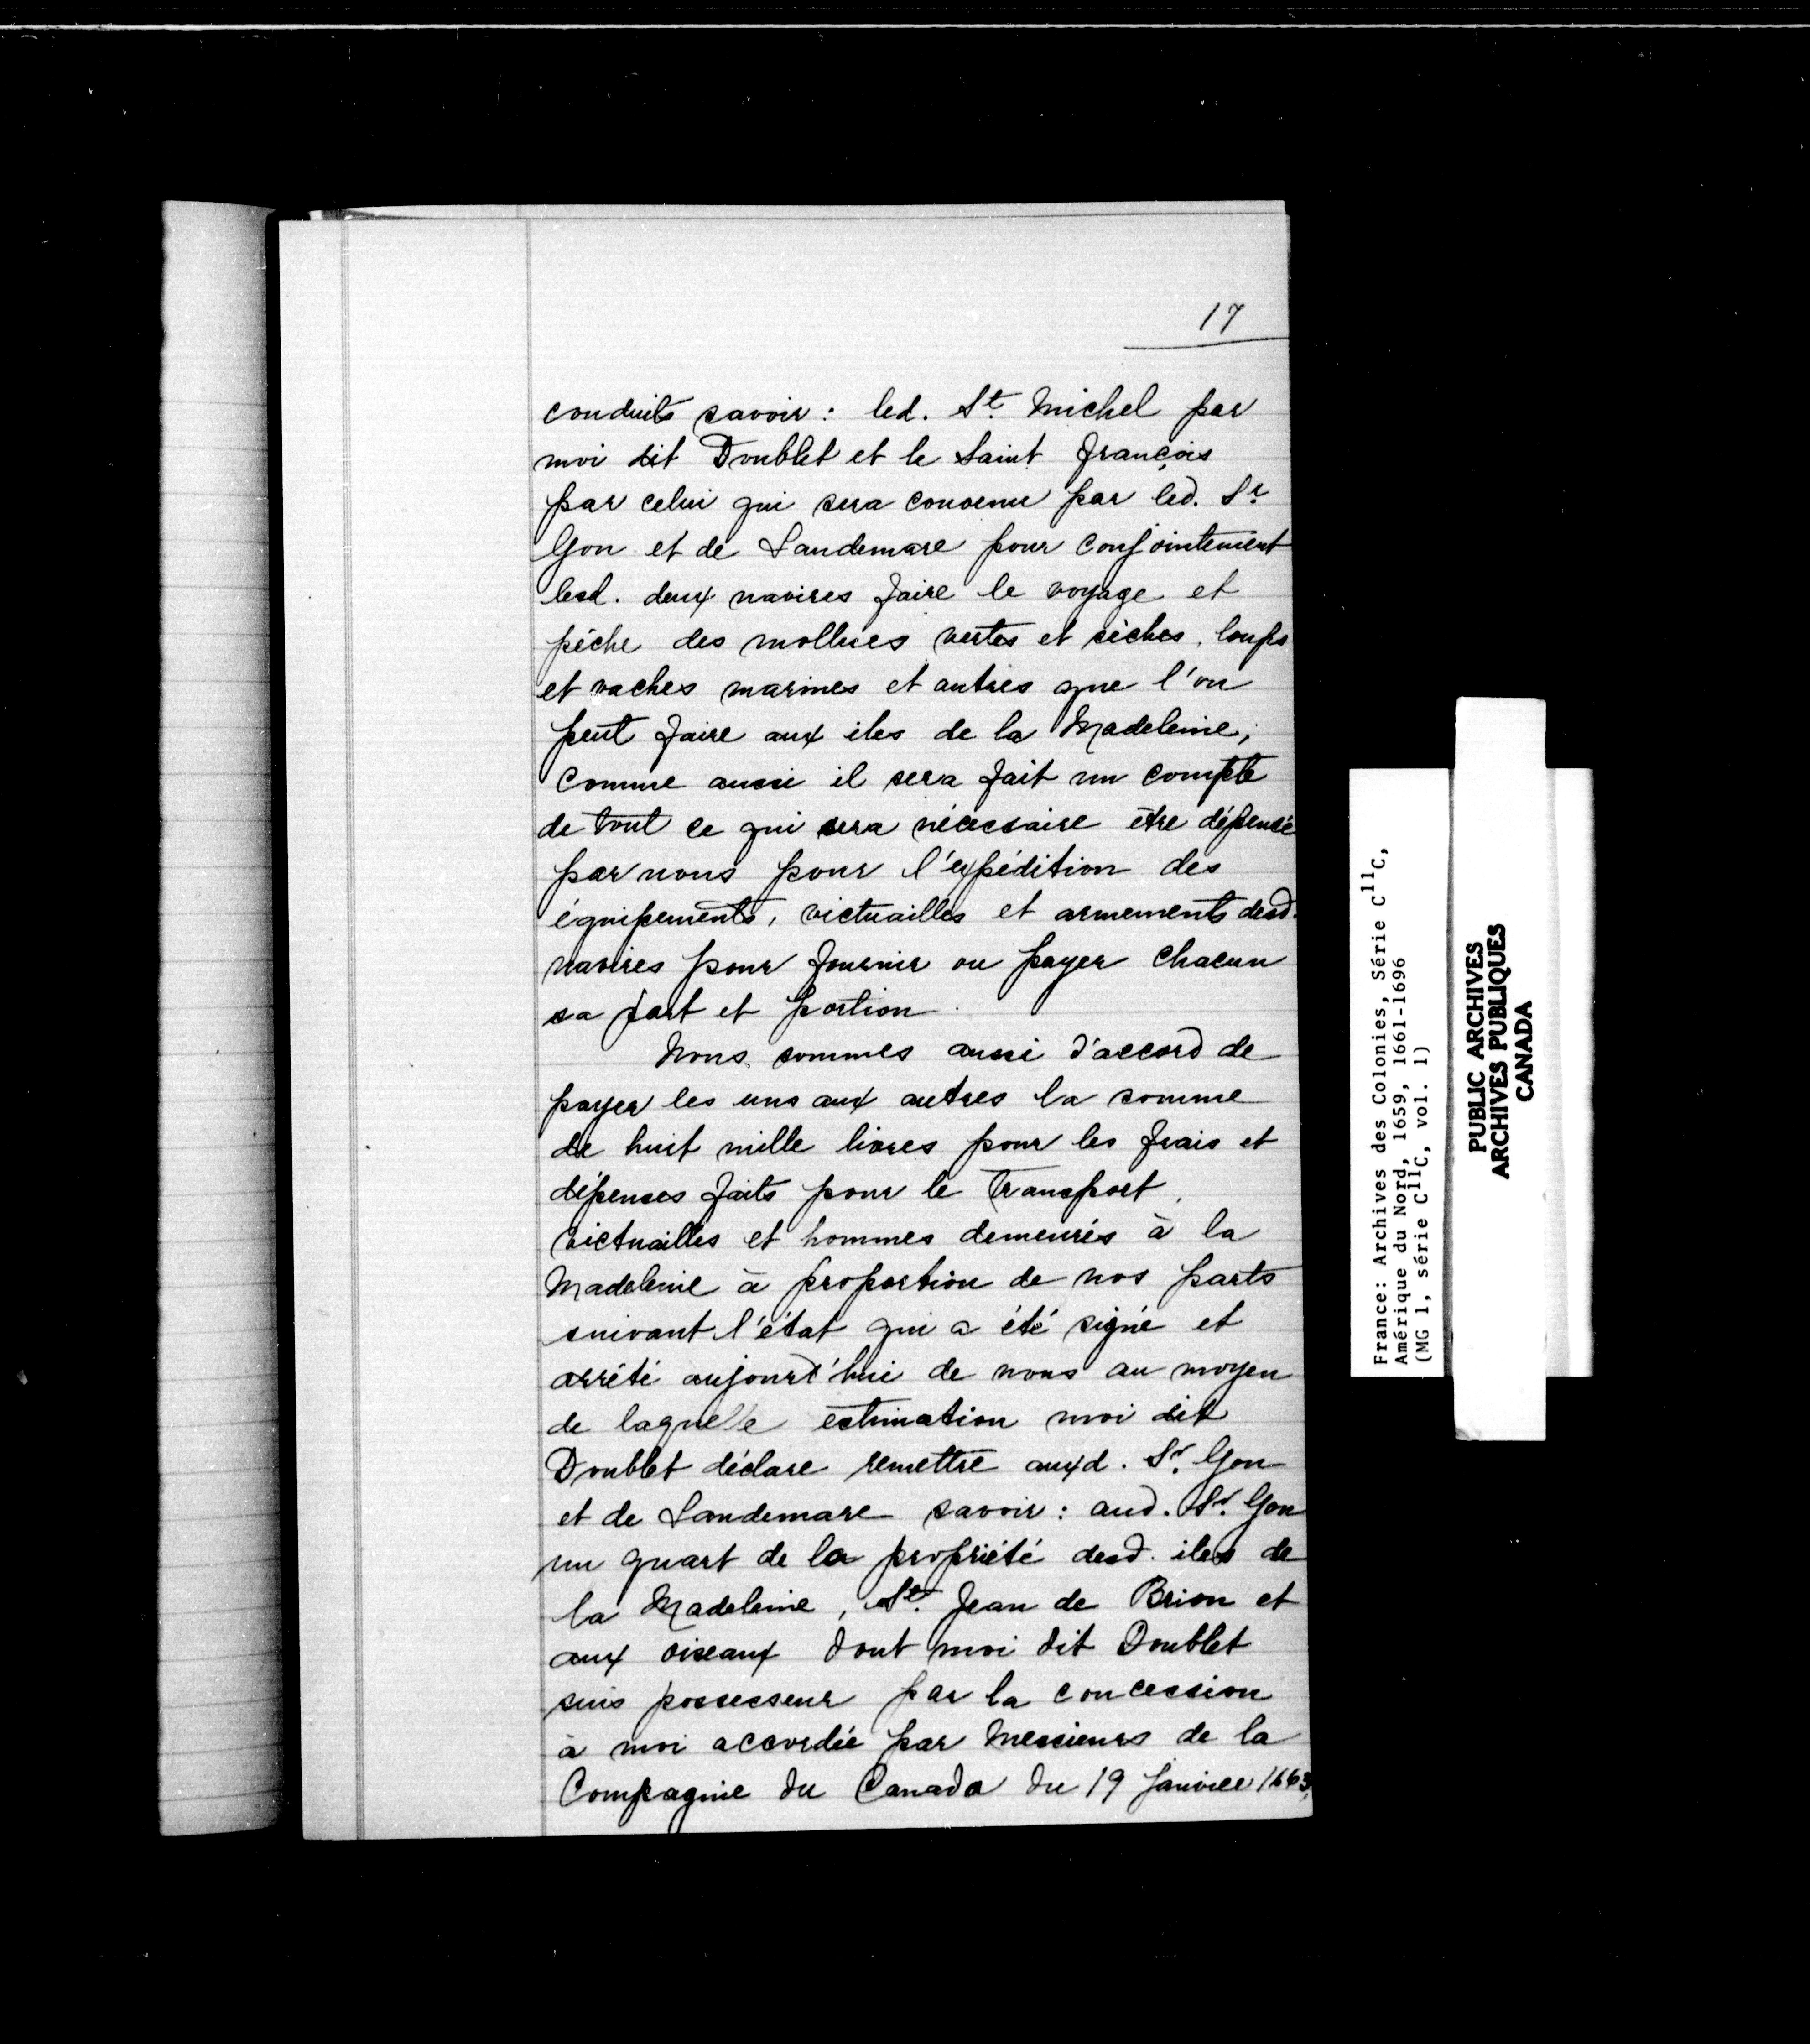 17
conduits savoir : led. St. Michel par
moi dit Doublet et le Saint François
par celui qui sera convenu par led. Sr.
Gon et de Landemare pour conjointement
lesd. deux navires faire le voyage et
pêche des mollues vertes et sèches, loups
et vaches marines et autres que l'on
peut faire aux iles de la Madeleine,
comme aussi il sera fait un compte
de tout ce qui sera nécessaire être dépensé
par nous pour l'expédition des
équipements, victuailles et armements desd.
navires pour fournir ou payer chacun
sa part et portion.
Nous sommes aussi d'accord de
payer les uns aux autres la somme
de huit mille livres pour les frais et
dépenses faits pour le transport,
victuailles et hommes demeurés à la
Madeleine à proportion de nos parts
suivant l'état qui a été signé et
arrêté aujourd'hui de nous au moyen
de laquelle estimation moi dit
Doublet déclare remettre auxd. Sr. Gon
et de Landemare savoir : aud. Sr. Gon
un quart de la propriété desd. iles de
la Madeleine, St. Jean de Brion et
aux oiseaux dont moi dit Doublet
suis possesseur par la concession
à moi accordée par Messieurs de la
Compagnie du Canada du 19 Janvier 1663,
France: Archives des Colonies, Série C11C,
Amérique du Nord, 1659, 1661-1696
(MG 1, série C11C, vol. 1)
PUBLIC ARCHIVES
ARCHIVES PUBLIQUES
CANADA